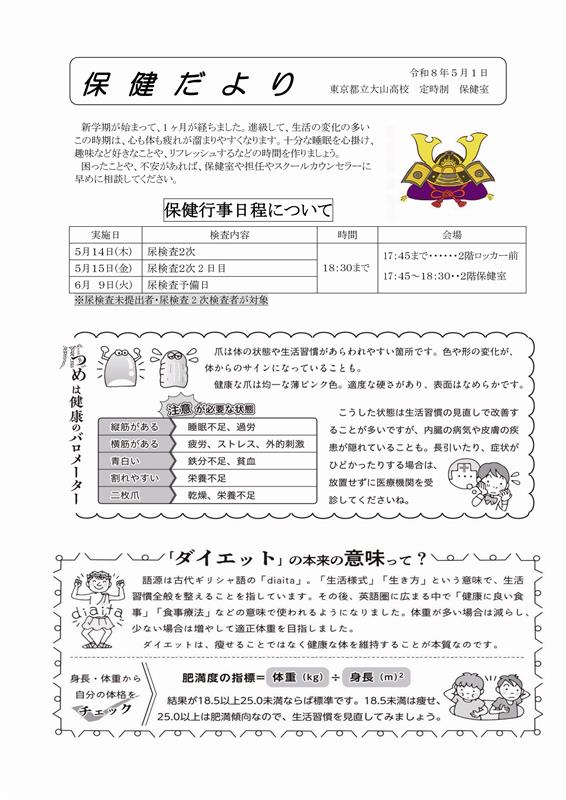 保健だより
令和８年５月１日
東京都立大山高校　定時制　保健室
新学期が始まって、１ヶ月が経ちました。進級して、生活の変化の多い
この時期は、心も体も疲れが溜まりやすくなります。十分な睡眠を心掛け、
趣味など好きなことや、リフレッシュするなどの時間を作りましょう。
困ったことや、不安があれば、保健室や担任やスクールカウンセラーに
早めに相談してください。
保健行事日程について
実施日　検査内容　時間　会場
5月14日(木)　尿検査2次　18:30まで　17:45まで・・・・・・2階ロッカー前
5月15日(金)　尿検査2次２日目　17:45～18:30・・2階保健室
6月　9日(火)　尿検査予備日
※尿検査未提出者・尿検査２次検査者が対象
つめは健康のバロメーター
爪は体の状態や生活習慣があらわれやすい箇所です。色や形の変化が、
体からのサインになっていることも。
健康な爪は均一な薄ピンク色。適度な硬さがあり、表面はなめらかです。
注意が必要な状態
縦筋がある　睡眠不足、過労
横筋がある　疲労、ストレス、外的刺激
青白い　鉄分不足、貧血
割れやすい　栄養不足
二枚爪　乾燥、栄養不足
こうした状態は生活習慣の見直しで改善す
ることが多いですが、内臓の病気や皮膚の疾
患が隠れていることも。長引いたり、症状が
ひどかったりする場合は、
放置せずに医療機関を受
診してくださいね。
「ダイエット」の本来の意味って？
diaita
語源は古代ギリシャ語の「diaita」。「生活様式」「生き方」という意味で、生活
習慣全般を整えることを指しています。その後、英語圏に広まる中で「健康に良い食
事」「食事療法」などの意味で使われるようになりました。体重が多い場合は減らし、
少ない場合は増やして適正体重を目指しました。
ダイエットは、痩せることではなく健康な体を維持することが本質なのです。
身長・体重から
自分の体格を
チェック
肥満度の指標＝ 体重 (kg) ÷ 身長 (m)²
結果が18.5以上25.0未満ならば標準です。18.5未満は痩せ、
25.0以上は肥満傾向なので、生活習慣を見直してみましょう。